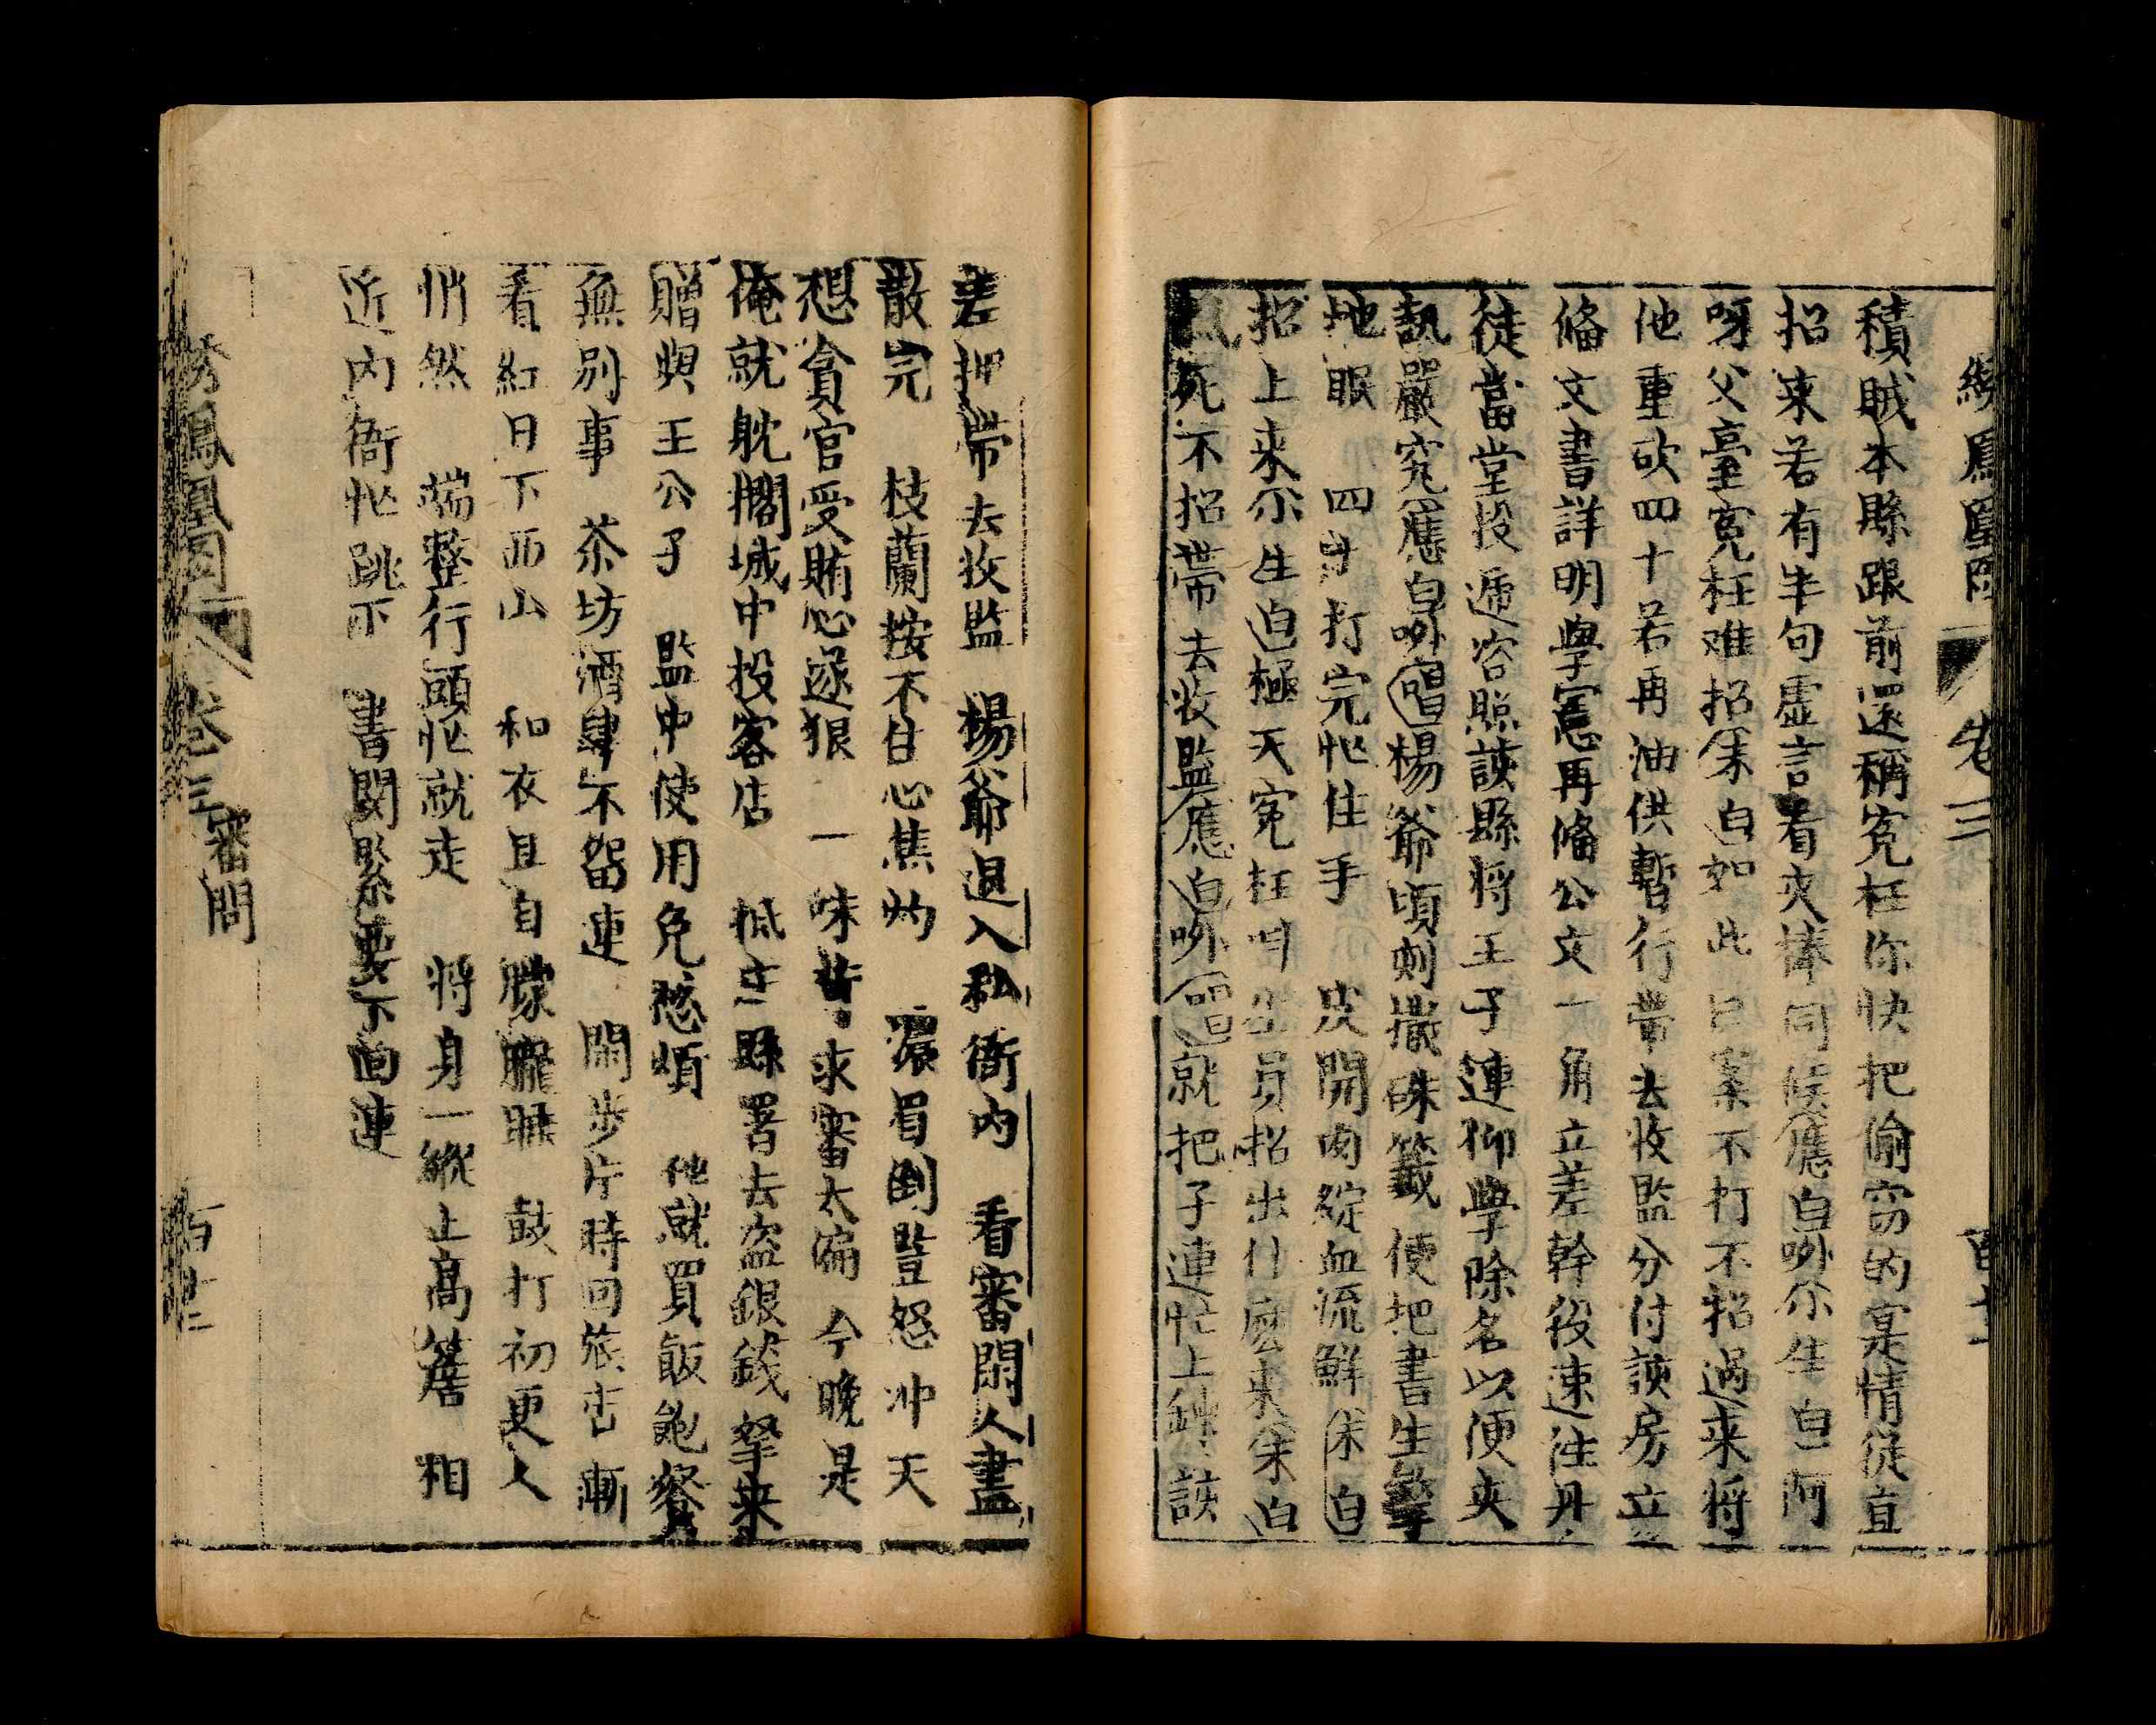 繡鳳凰 卷三
積賊本縣跟前還稱寃枉你快把偷窃的寔情從直
招来若有半句虛言看夾棒伺候應白吶小生白阿
呀父臺寃枉难招末白如此口案不打不招過来将
他重砍四十若再油供暫行帶去收監分付該房立
俻文書詳明學憲再俻公文一角立差幹役速往丹
徒當堂投遞咨照該縣将王子連仰學除名以便夾
執嚴究應白吶唱楊爺頃刻撒硃籤便把書生拏
地眠 四十打完忙住手 皮開肉綻血流鮮末白
招上来小生白極天寃枉叫生員招出什麽来末白
死不招帶去收監應白吶唱就把子連忙上鍊該
差押帶去收監 楊爺退入私衙内 看審閑人盡
散完 枝蘭按不住心焦灼 濃眉倒豎怒冲天
想貪官受賄心遂狠 一味苛求審太偏 今晚是
俺就躭擱城中投客店 抵庄縣署去盗銀錢拏来
贈與王公子 監中使用免愁煩 他就買飯飽餐
無别事 茶坊酒肆不留連 閑步片時回旅店漸
看紅日下西山 和衣且自朦朧睡 鼓打初更人
悄然 端整行頭忙就走 将身一縱上高簷 相
近内衙忙跳下 書関緊要下回連
繡鳳凰回 卷三 審問